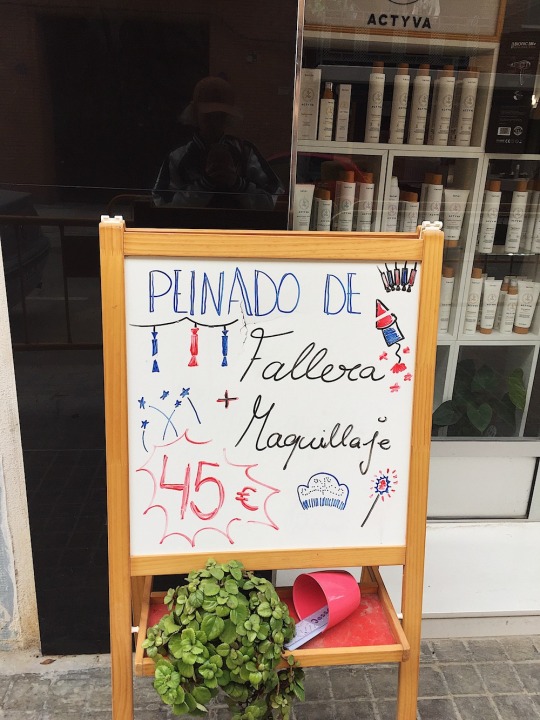 ACTYVA
PEINADO DE
Fallera
+
Maquillaje
45 €